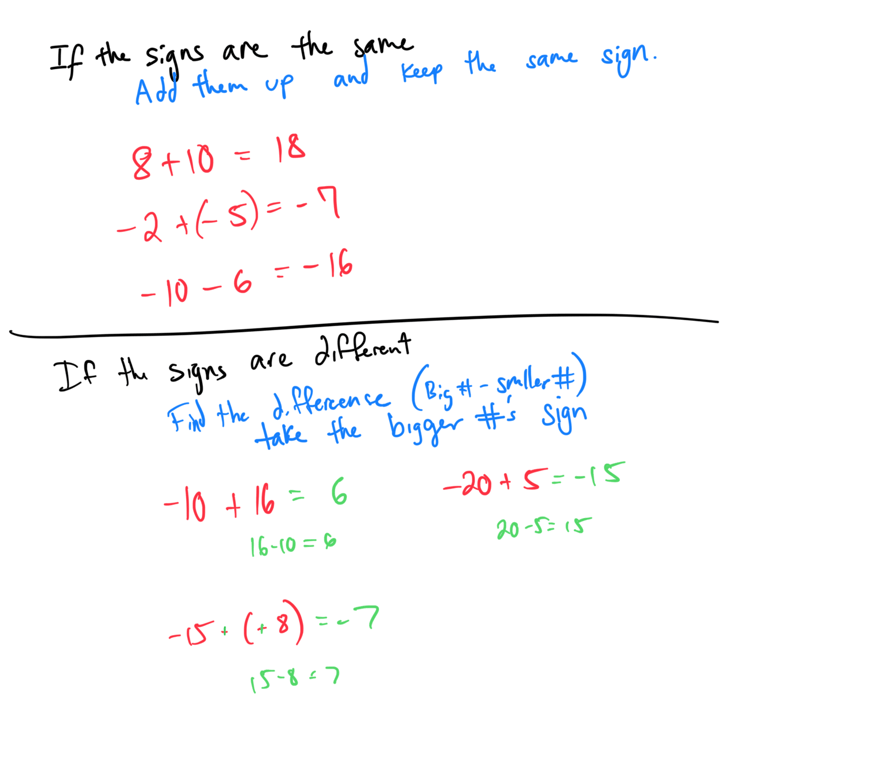 If the signs are the same
Add them up and keep the same sign.
8 + 10 = 18
-2 + (-5) = -7
-10 - 6 = -16
If the signs are different
Find the difference (Big # - smaller #)
take the bigger #'s sign
-10 + 16 = 6
16-10 = 6
-20 + 5 = -15
20-5 = 15
-15 + (+8) = -7
15-8 = 7